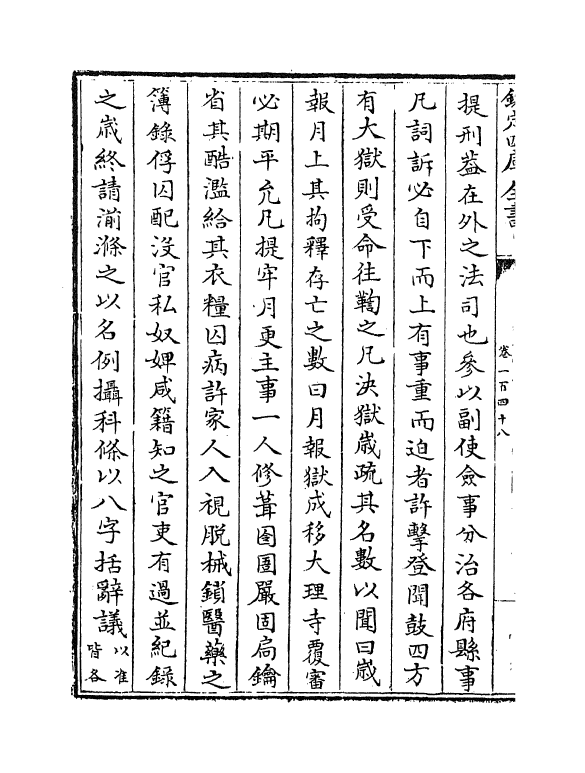 欽定四庫全書
卷一百四十八
提刑葢在外之法司也參以副使僉事分治各府縣事
凡詞訴必自下而上有事重而迫者許擊登聞鼓四方
有大獄則受命往鞫之凡決獄嵗疏其名數以聞曰嵗
報月上其拘釋存亡之數曰月報獄成移大理寺覆審
必期平允凡提牢月更主事一人修葺囹圄嚴固扃鑰
省其酷濫給其衣糧囚病許家人入視脱械鎖醫藥之
簿錄俘囚配没官私奴婢咸籍知之官吏有過並紀錄
之嵗終請湔滌之以名例攝科條以八字括辭議以准
皆各